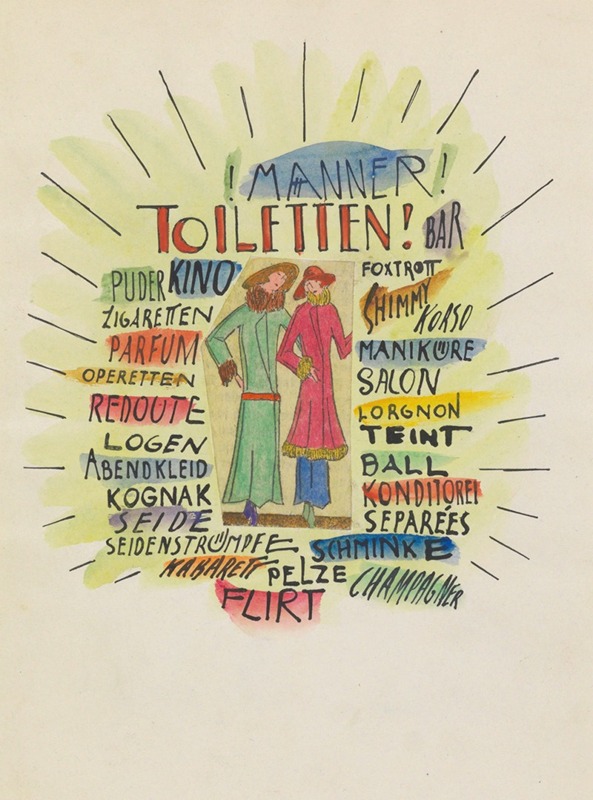 ! MÄNNER!
TOILETTEN!
BAR
PUDER KINO
ZIGARETTEN
PARFUM
OPERETTEN
REDOUTE
LOGEN
ABENDKLEID
KOGNAK
SEIDE
SEIDENSTRÜMPFE
KABARETT
FOXTROTT
SHIMMY
KORSO
MANIKÜRE
SALON
LORGNON
TEINT
BALL
KONDITOREI
SEPARÉES
SCHMINKE
PELZE
CHAMPAGNER
FLIRT